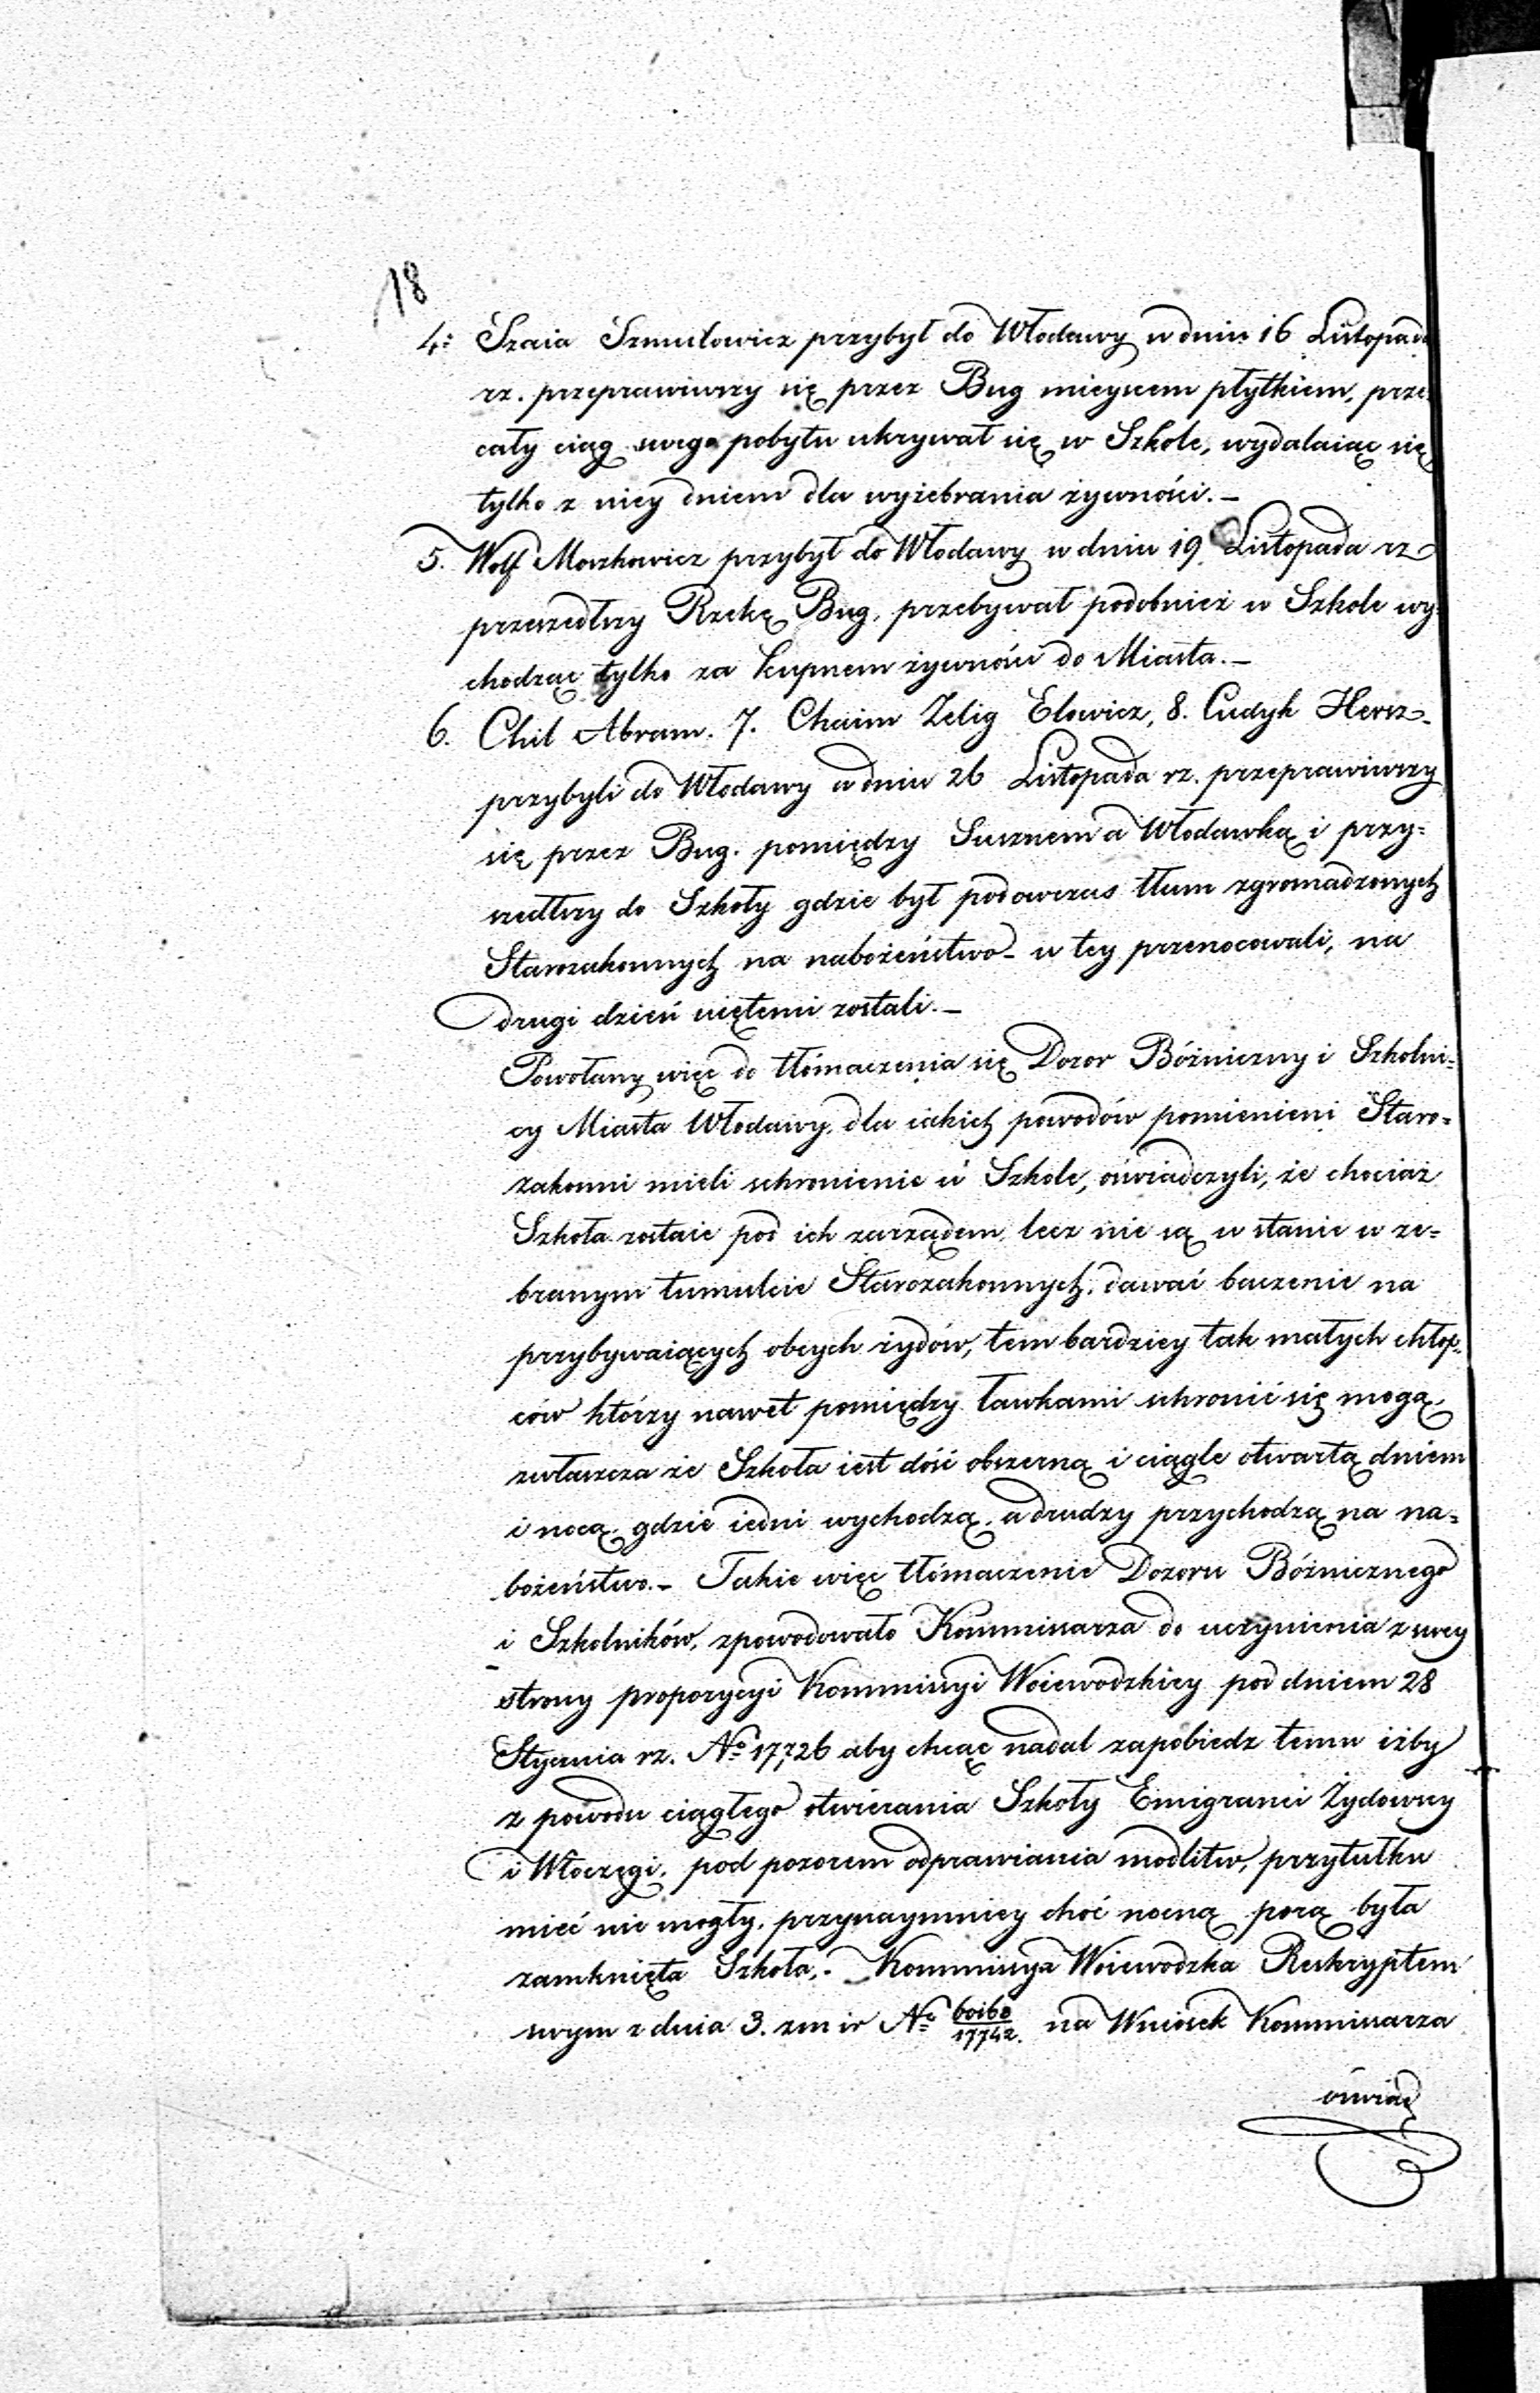 18
4: Szaia Szmulowicz przybył do Włodawy w dniu 16 Listopada
rz. przeprawiwszy się przez Bug mieyscem płytkiem, prze
cały ciąg swego pobytu ukrywał się w Szkole, wydalaiąc się
tylko z niey dniem dla wyżebrania żywności. –
5. Wolf Moszkowicz przybył do Włodawy w dniu 19 Listopada rz
przeszedłszy Rzekę Bug, przebywał podobnież w Szkole wy=
chodząc tylko za kupnem żywności do Miasta. –
6. Chil Abram. 7. Chaim Zelig Elowicz, 8. Cudyk Hersz –
przybyli do Włodawy w dniu 26 Listopada rz. przeprawiwszy
się przez Bug. pomiędzy Susznem a Włodawką i przy=
szedłszy do Szkoły gdzie był podowczas tłum zgromadzonych
Starozakonnych na nabożeństwo – w tey przenocowali, na
drugi dzień uiętemi zostali. –
Powołany więc do tłómaczenia się Dozor Bóżniczny i Szkolni=
cy Miasta Włodawy, dla iakich powodów pomienieni Staro=
zakonni mieli schronienie w Szkole, oświadczyli, że chociaż
Szkoła zostaie pod ich zarządem lecz nie są w stanie w ze=
branym tumulcie Starozakonnych, dawać baczenie na
przybywaiących obcych żydów, tem bardziey tak małych chłop=
ców którzy nawet pomiędzy ławkami schronić się mogą,
zwłaszcza że Szkoła iest dość obszerną i ciągle otwartą dniem
i nocą, gdzie iedni wychodzą, a drudzy przychodzą na na=
bożeństwo. – Takie więc tłómaczenie Dozoru Bóżnicznego
i Szkolników, spowodowało Kommissarza do uczynienia z swey
strony propozycyi Kommissyi Woiewodzkiey pod dniem 28
Stycznia rz. No 17,726 aby chcąc nadal zapobiedz temu iżby
z powodu ciągłego otwierania Szkoły Emigranci Żydowscy
i Włoczęgi, pod pozorem odprawiania modlitw, przytułku
mieć nie mogły, przynaymniey choć nocną porą była
zamknięta Szkoła. – Kommissya Woiewodzka Reskryptem
swym z dnia 3. zm ir No 60160/17742. na Wniosek Kommissarza
oświad